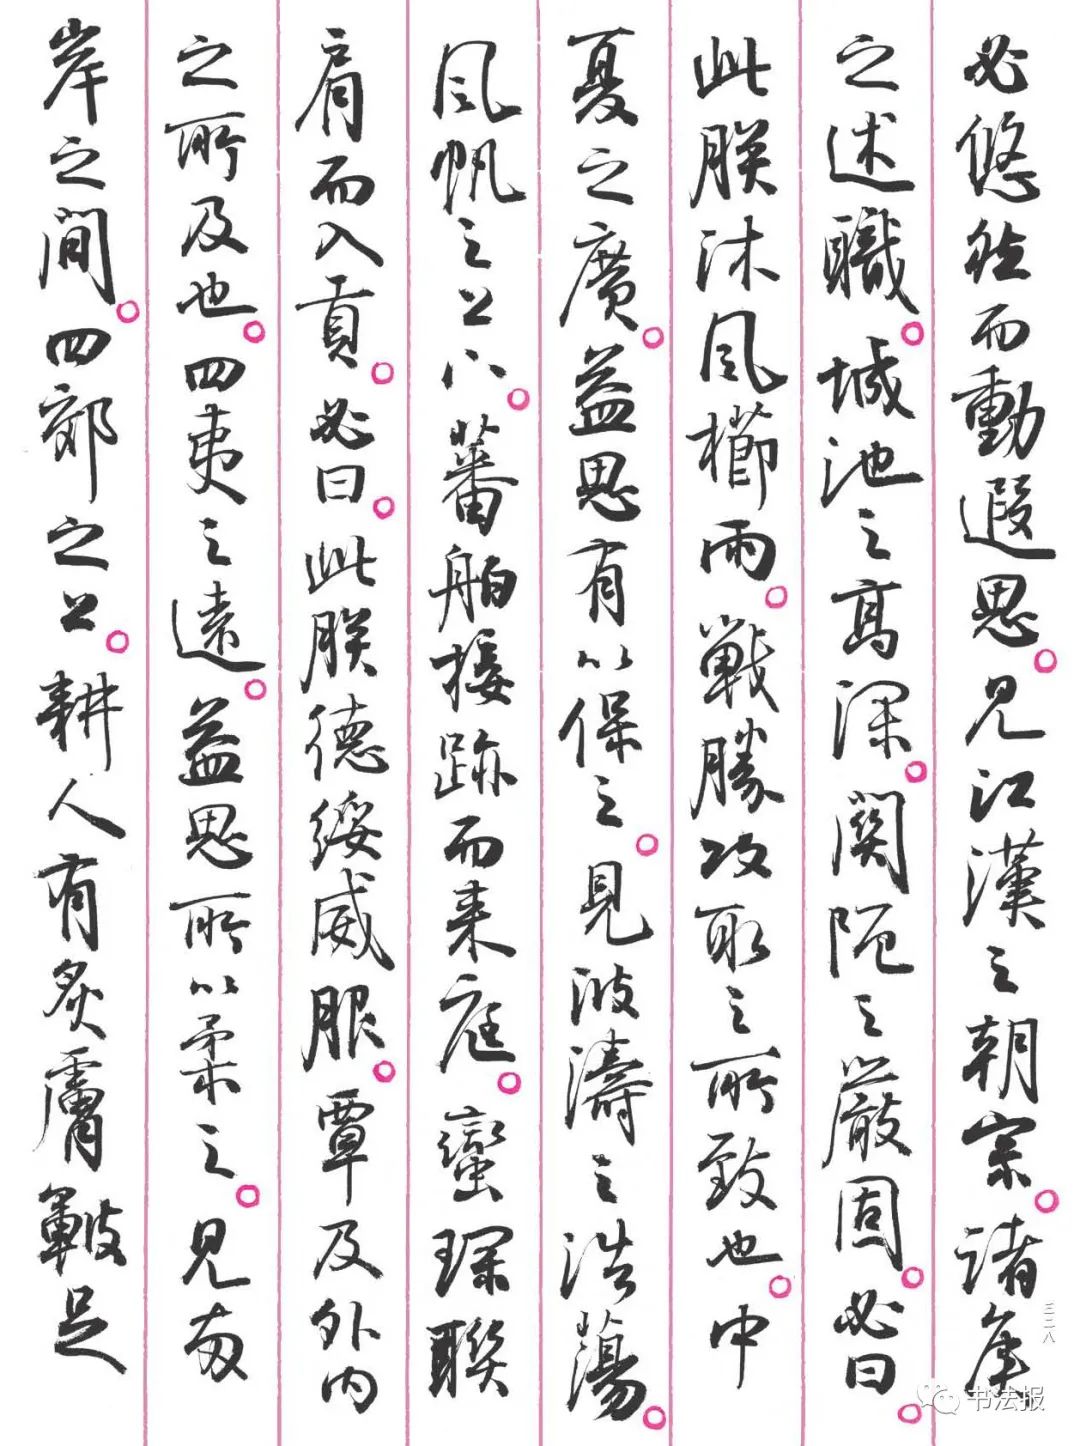 必悠然而動遐思。見江漢之朝宗。諸侯
之述職。城池之高深。關阨之嚴固。必曰。
此朕沐風櫛雨。戰勝攻取之所致也。中
夏之廣。益思有以保之。見波濤之浩蕩。
風帆之上下。蕃舶接跡而来庭。蠻琛聯
肩而入貢。必曰。此朕德綏威服。覃及外内
之所及也。四夷之遠。益思所以柔之。見兩
岸之間。四郊之上。耕人有炙膚皸足
三二八
书法报